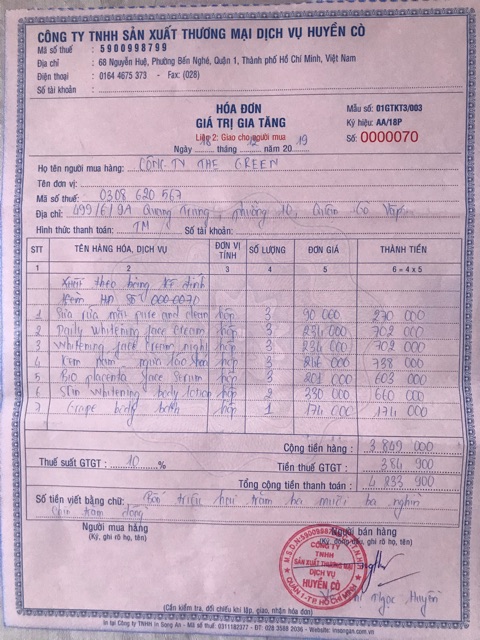 CÔNG TY TNHH SẢN XUẤT THƯƠNG MẠI DỊCH VỤ HUYỀN CÒ
Mã số thuế : 5900998799
Địa chỉ : 68 Nguyễn Huệ, Phường Bến Nghé, Quận 1, Thành phố Hồ Chí Minh, Việt Nam
Điện thoại : 0164 4675 373 - Fax: (028)
Số tài khoản :
HÓA ĐƠN Mẫu số: 01GTKT3/003
GIÁ TRỊ GIA TĂNG Ký hiệu: AA/18P
Liên 2: Giao cho người mua Số: 0000070
Ngày 18 tháng 12 năm 2019
Họ tên người mua hàng: CÔNG TY THE GREEN
Tên đơn vị:
Mã số thuế: 0308 620 567
Địa chỉ: 499/6/9A Quang Trung, phường 10, Quận Gò Vấp
Hình thức thanh toán: TM Số tài khoản:
STT TÊN HÀNG HÓA, DỊCH VỤ ĐƠN VỊ TÍNH SỐ LƯỢNG ĐƠN GIÁ THÀNH TIỀN
1 2 3 4 5 6 = 4 x 5
Xuất theo bảng kê đính
kèm HĐ số 0000070
1 Sữa rửa mặt pure and clean hộp 3 90 000 270 000
2 Daily whitening face cream hộp 3 234 000 702 000
3 Whitening face cream night hộp 3 234 000 702 000
4 Kem ngừa lão hộp 3 246 000 738 000
5 Bio placenta face serum hộp 3 201 000 603 000
6 Skin whitening body lotion hộp 2 330 000 660 000
7 Grape body hộp 1 174 000 174 000
Cộng tiền hàng : 3 849 000
Thuế suất GTGT : 10 % Tiền thuế GTGT : 384 900
Tổng cộng tiền thanh toán : 4 233 900
Số tiền viết bằng chữ: Bốn triệu hai trăm ba mươi ba nghìn
chín trăm đồng
Người mua hàng Người bán hàng
(Ký, ghi rõ họ, tên) (Ký, đóng dấu, ghi rõ họ, tên)
M.S.D.N:5900998799
CÔNG TY
TNHH
SẢN XUẤT THƯƠNG MẠI
DỊCH VỤ
HUYỀN CÒ
QUẬN 1 - T.P HỒ CHÍ MINH
Ngọc Huyền
(Cần kiểm tra, đối chiếu khi lập, giao, nhận hóa đơn)
In tại Công ty TNHH In Song An - Mã số thuế: 0311182377 - ĐT: 028 3589 2036 - Website: insongan.com.vn